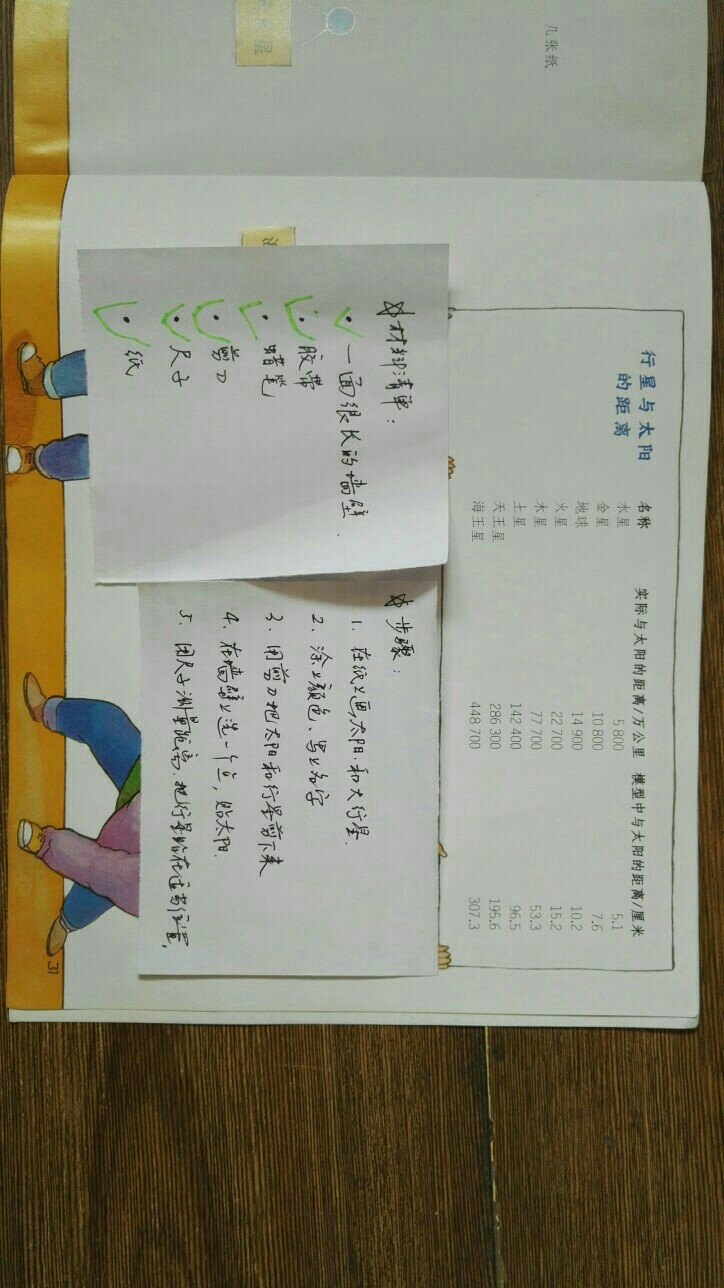 几张纸
行星与太阳
的距离
名称 实际与太阳的距离/万公里 模型中与太阳的距离/厘米
水星 5 800 5.1
金星 10 800 7.6
地球 14 900 10.2
火星 22 700 15.2
木星 77 700 53.3
土星 142 400 96.5
天王星 286 300 195.6
海王星 448 700 307.3
材料清单：
一面很长的墙壁.
胶带
蜡笔
剪刀
尺子
纸
步骤：
1. 在纸上画太阳.和大行星.
2. 涂上颜色、写上名字
3. 用剪刀把太阳和行星剪下来
4. 在墙壁上选一个点，贴太阳.
5. 用尺子测量距离.把行星贴在适当位置.
31